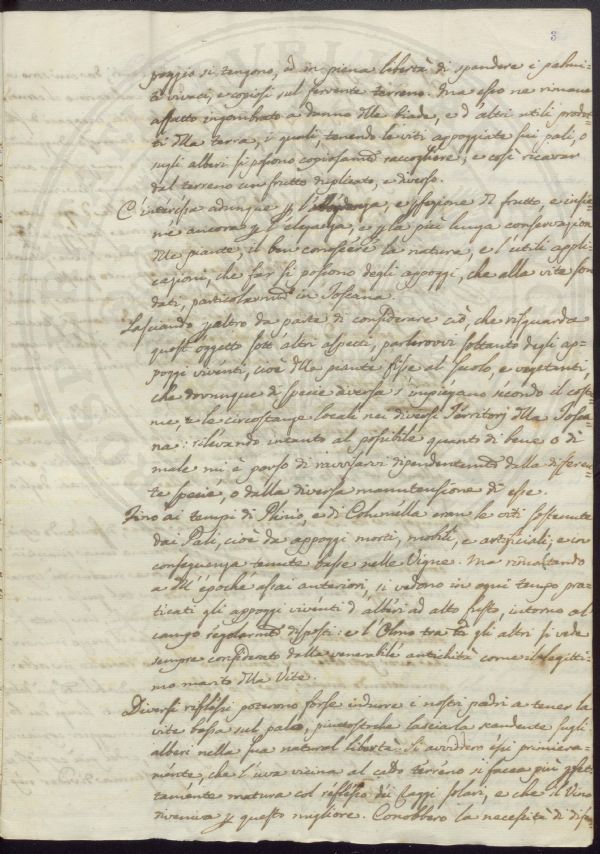 3
poggio si tengono, ed in piena libertà di spandere i palmi-
ti vivaci, e copiosi sul fervente terreno. Ma esso ne rimane
affatto ingombrato a danno delle biade, e d'altri utili prodot-
ti della terra, i quali, tenendo le viti appoggiate sui pali, o
sugli alberi si possono copiosamte raccogliere, e così ricavar
dal terreno un frutto duplicato, e diverso.
C'interessa adunque p l' e pfezione del frutto, e insie-
me ancora p l'eleganza, e p la più lunga conservazion
delle piante, il ben conoscere la natura, e l'utili appli-
cazioni, che far si possono degli appoggi, che alla vite son
dati, particolarmte in Toscana.
Lasciando p altro da parte di considerare ciò, che risguarda
quest'oggetto sott'altri aspetti, parlerovvi soltanto degli ap-
poggi viventi, cioè delle piante fisse al suolo, e vegetanti
che dovunque di specie diversa s'impiegano secondo il costu-
me, e le circostanze locali nei diversi Territorj della Tosca-
na: rilevando intanto al possibile quanto di bene o di
male mi è parso di ravvisarvi dipendentemte dalla differen-
te specie, o dalla diversa manutensione di esse.
Fino ai tempi di Plinio, e di Columella eran le viti sostenute
dai Pali, cioè da appoggi morti, mobili, e artificiali; e in
conseguenza tenute basse nelle Vigne. Ma rimontando
a dell'epoche assai anteriori, si vedono in ogni tempo pra-
ticati gli appoggi viventi d'alberi ad alto fusto, intorno al
campo regolarmte disposti: e l'Olmo tra tti gli altri si vede
sempre considerato dalla venerabile antichità come il legitti-
mo marito della Vite.
Diversi riflessi poterono forse indurre i nostri padri a tener la
vite bassa sul palo, piuttostoche lasciarla scandente sugli
alberi nella sua natural libertà. Si avviddero essi primiera-
mente, che l'uva vicina al caldo terreno si facea più pfet-
tamente matura col riflesso dei raggi solari, e che il Vino
diveniva p questo migliore. Conobbero la necessità di difen-